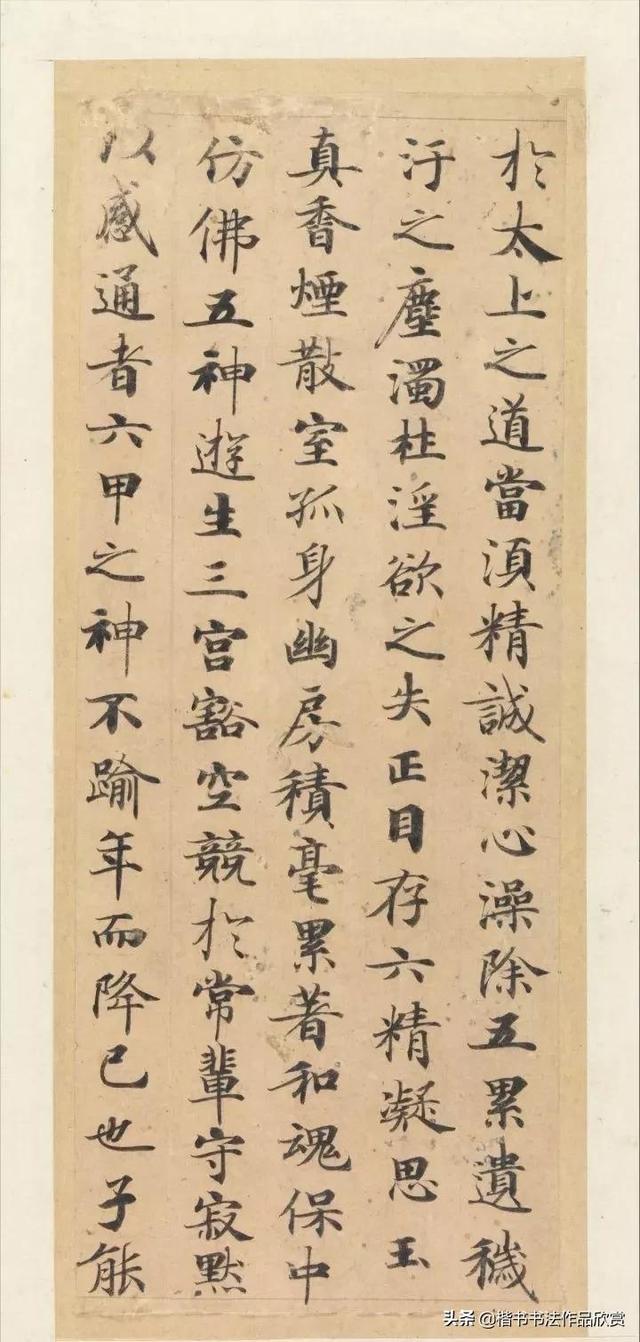 於太上之道當須精誠潔心澡除五累遺穢
汙之塵濁杜淫欲之失正目存六精凝思玉
真香煙散室孤身幽房積毫累著和魂保中
仿佛五神遊生三宮豁空競於常輩守寂默
以感通者六甲之神不踰年而降已也子能
头条 @楷书书法作品欣赏